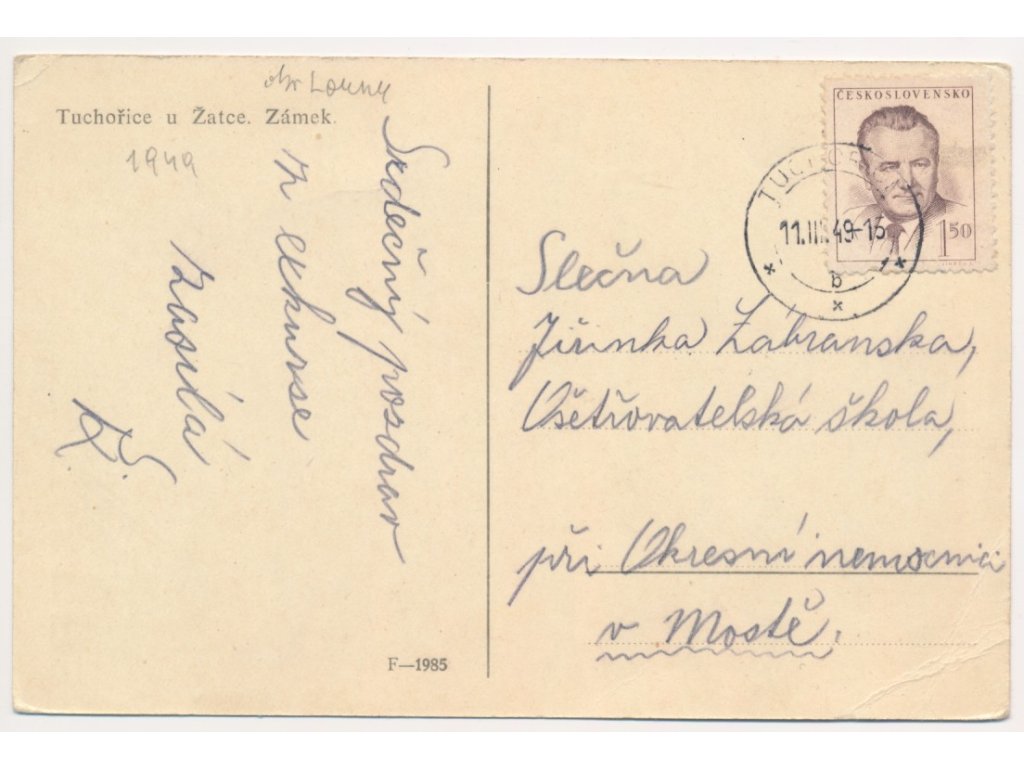 okr Louny
Tuchořice u Žatce. Zámek.
1949
Srdečný pozdrav
z exkurse
zasílá
F—1985
ČESKOSLOVENSKO
1 50
11.III.49-16
b
Slečna
Jiřinka Zábranska,
Ošetřovatelská škola,
při Okresní nemocnici
v Mostě.